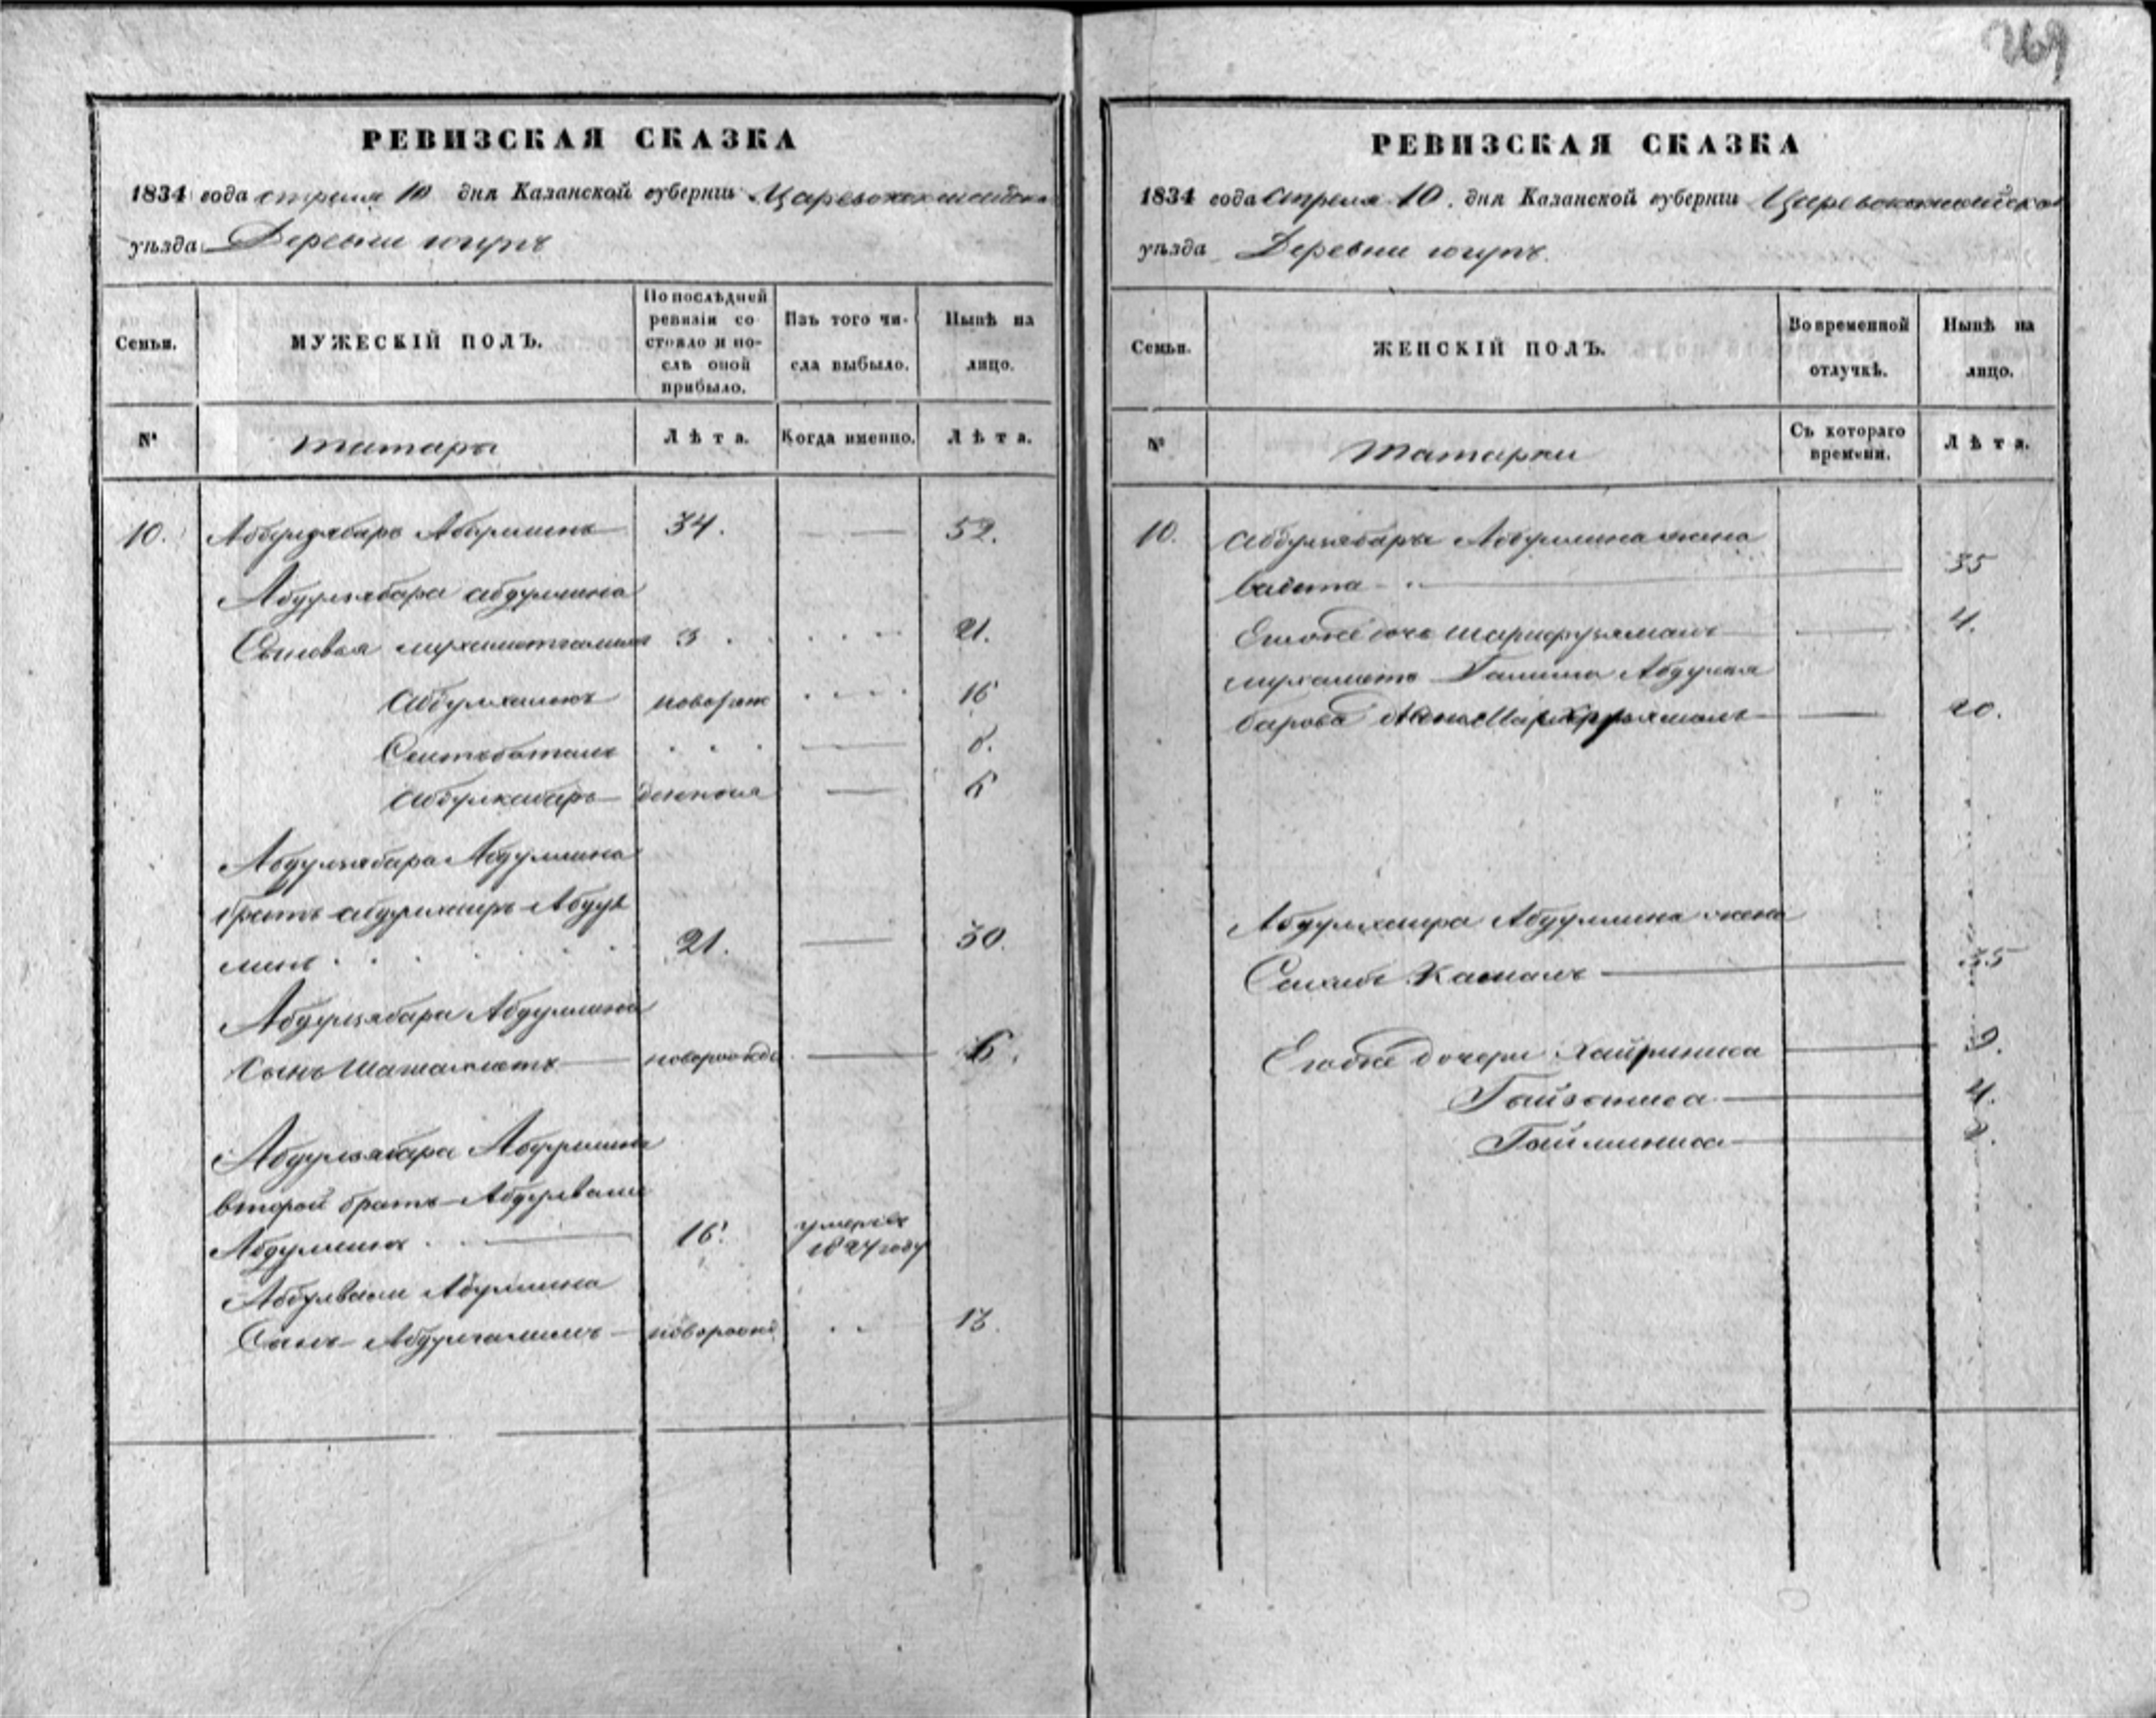 269
РЕВИЗСКАЯ СКАЗКА
1834 года апреля 10 дня Казанской губернiи Царевококшайска
уѣзда Деревни югупъ
Семьи.
МУЖЕСКIЙ ПОЛЪ.
По послѣдней ревизiи состояло и послѣ оной прибыло.
Изъ того числа выбыло.
Нынѣ на лицо.
№
татары
Лѣта.
Когда именно.
Лѣта.
10. Абдулзябаръ Абдулминъ 34. 52.
Абдулзябара абдулмина
Сыновья мухаметгалимъ 3 21.
Абдулхаликъ новорож 16
Сеитъбаталъ 8.
Абдулкабиръ 6
Абдулзябара Абдулмина
братъ абдулхаиръ Абдул
минъ 21. 30.
Абдулзябара Абдулмина
сынъ Шагиахметъ новорожде 6.
Абдулзябара Абдулмина
второй братъ Абдулвали
Абдулминъ 16. умеръ въ 1824 году
Абдулвали Абдулмина
Сынъ Абдулгалимъ новорожд 13.
РЕВИЗСКАЯ СКАЗКА
1834 года апреля 10. дня Казанской губернiи Царевококшайска
уѣзда Деревни югупъ.
Семьи.
ЖЕНСКIЙ ПОЛЪ.
Во временной отлучкѣ.
Нынѣ на лицо.
№
татарки
Съ котораго времени.
Лѣта.
10. абдулзябара Абдулмина жена
35
Егоже дочь шарифузямалъ 4.
мухаметъ Галима Абдулзя
барова жена 20.
Абдулхаира Абдулмина жена
Сахиб Камалъ 35
Егоже дочери Хайриниса 9.
Гайзониса 4.
Гайминиса